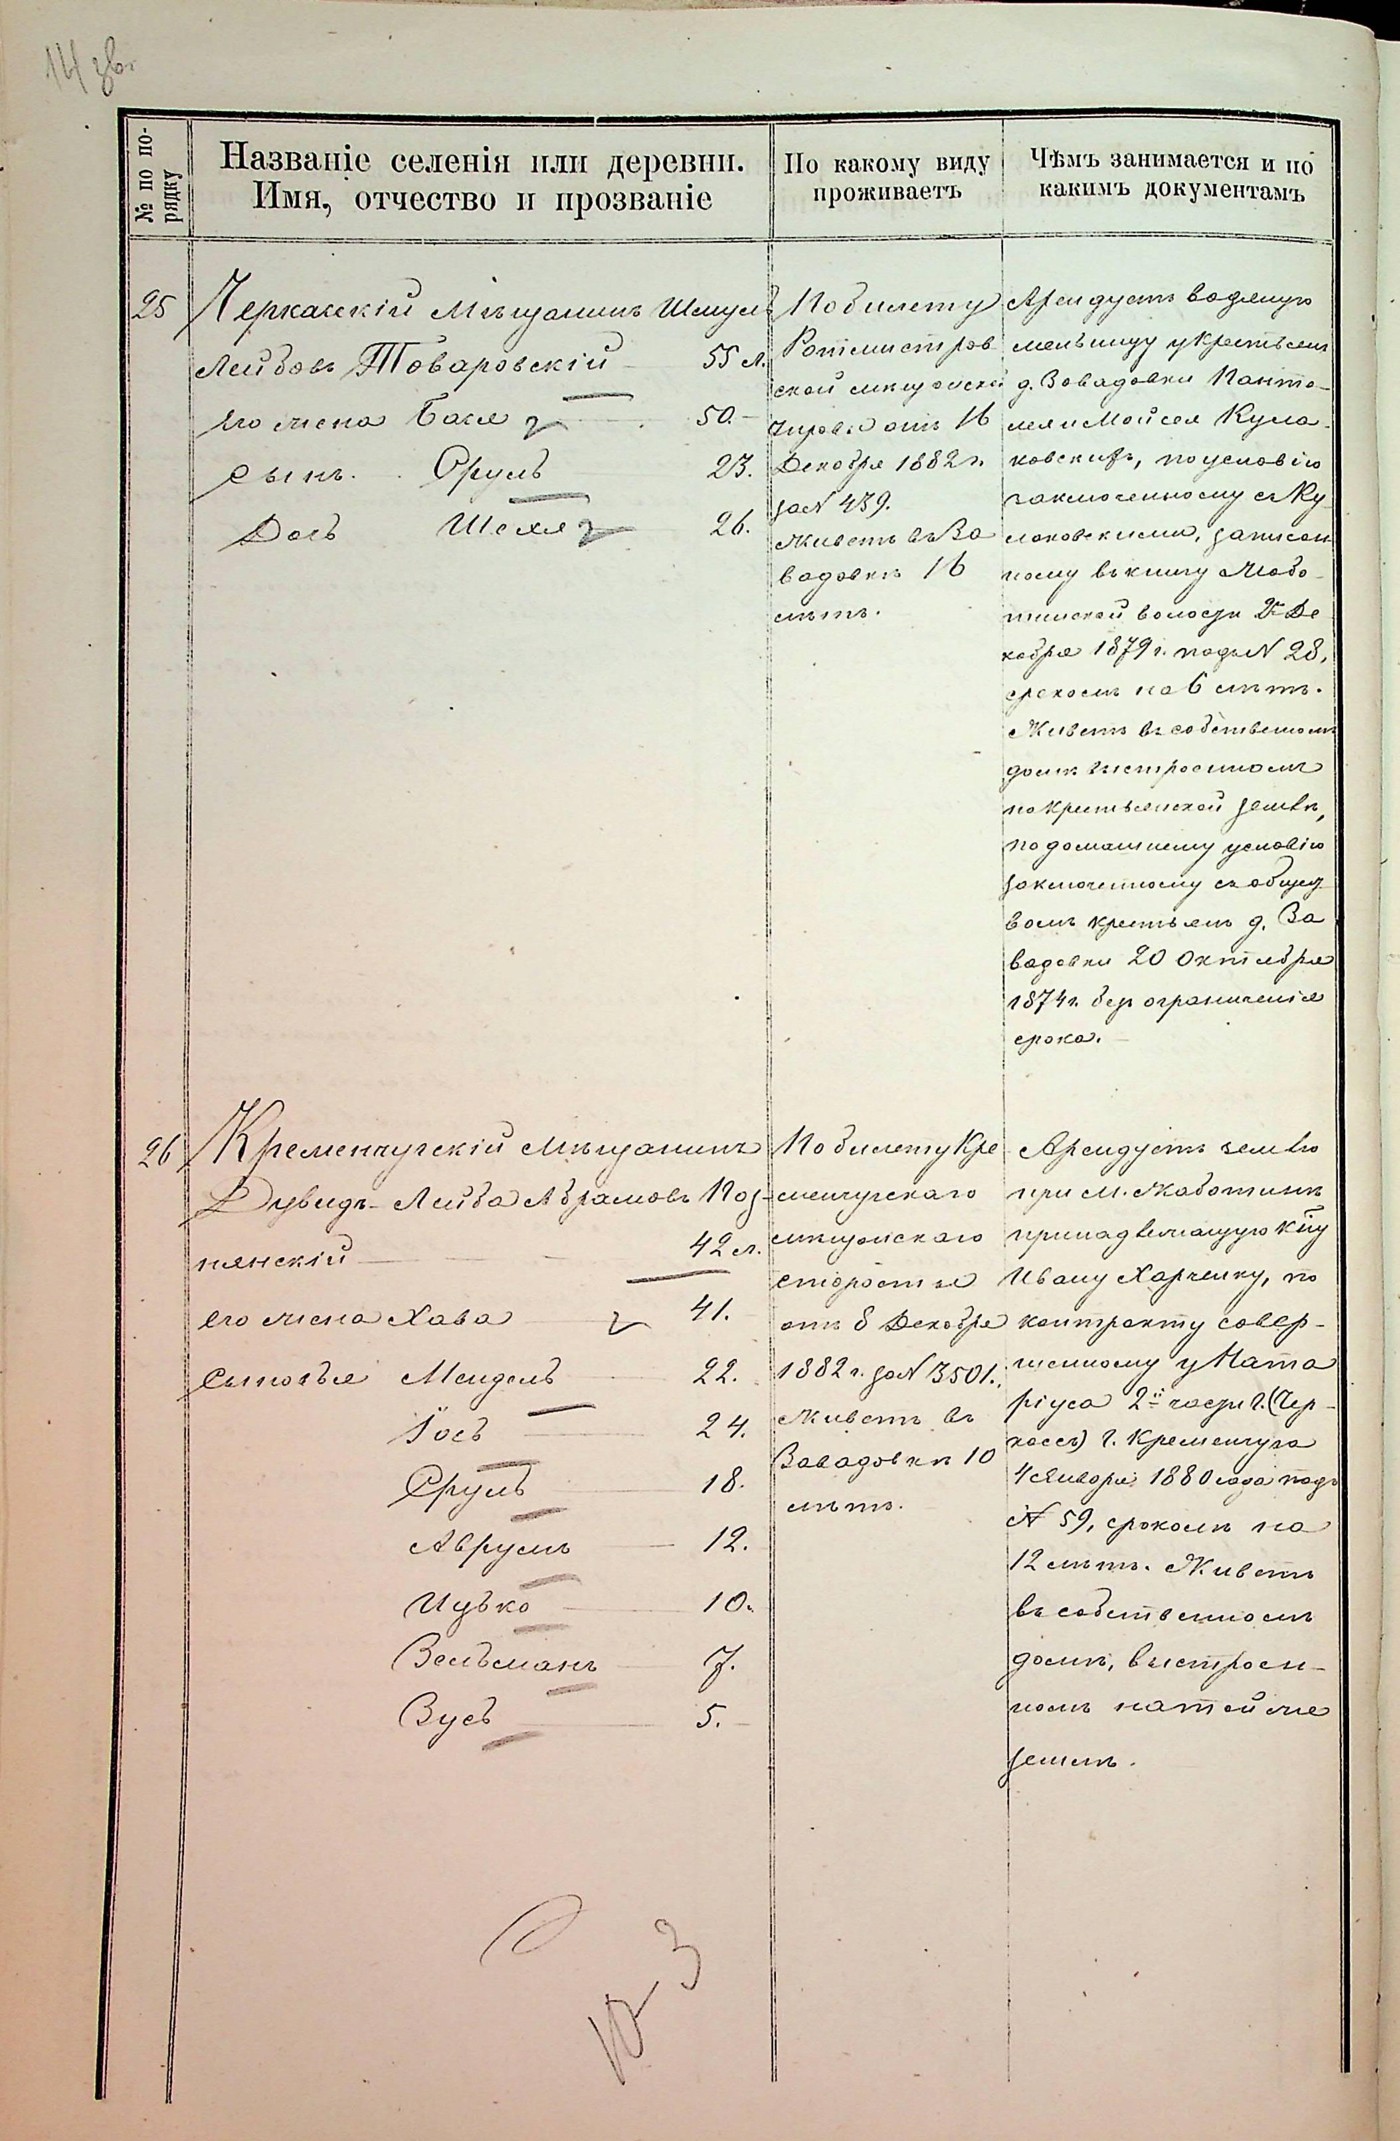 14 зв.
№ по по-
рядку
Названіе селенія или деревни.
Имя, отчество и прозваніе
По какому виду
проживаетъ
Чѣмъ занимается и по
какимъ документамъ
25
Черкасскій Мѣщанинъ Шмуль
Лейбовъ Товаровскій 55 л.
его жена Бася 50.
сынъ. Срулъ 23.
Дочь Шейля 26.
По билету
Ротмистров
ской мѣщанской
управы отъ 16
Декабря 1882 г.
за N 439.
Живетъ въ За
вадовкѣ 16
лѣтъ.
Арендуетъ водяную
мельницу у крестьянъ
д. Завадовки Панте-
лея и Мойсея Кула-
ковскихъ, по условію
заключенному съ Ку
лаковскими, записан
ному въ книгу Жабо-
тинской волости 2 Де
кабря 1879 г. подъ N 28,
срокомъ на 6 лѣтъ.
Живетъ въ собственномъ
домѣ выстроенномъ
на крестьянской землѣ,
по домашнему условію
заключенному съ общест
вомъ крестьянъ д. За
вадовки 20 Октября
1874 г. безъ ограниченія
срока.
26
Кременчугскій Мѣщанинъ
Дувидъ-Лейба Абрамовъ Поз-
нянскій 42 л.
его жена Хава 41.
Сыновья Мендель 22.
Іось 24.
Срулъ 18.
Аврумъ 12.
Ицько 10.
Зельманъ 7.
Вусь 5.
По билету Кре
менчугскаго
мѣщанскаго
старосты
отъ 8 Декабря
1882 г. за N 3501.
Живетъ въ
Завадовкѣ 10
лѣтъ.
Арендуетъ землю
при м. Жаботинѣ
принадлежащую
Ивану Харченку, по
контракту совер-
шенному у Ната
ріуса 2й части г. (Чер-
кассъ) г. Кременчуга
4 Января 1880 года подъ
N 59, срокомъ на
12 лѣтъ. Живетъ
въ собственномъ
домѣ, выстроен-
номъ на той же
землѣ.
10-3